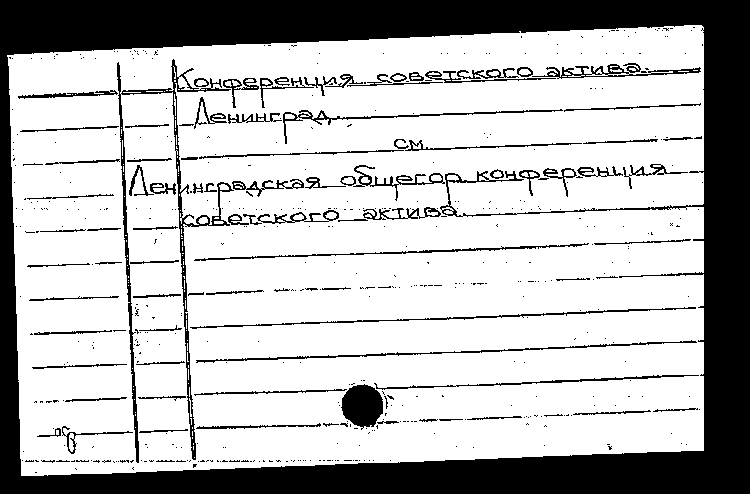 Конференция советского актива.
Ленинград.
см.
Ленинградская общегор конференция
советского актива.